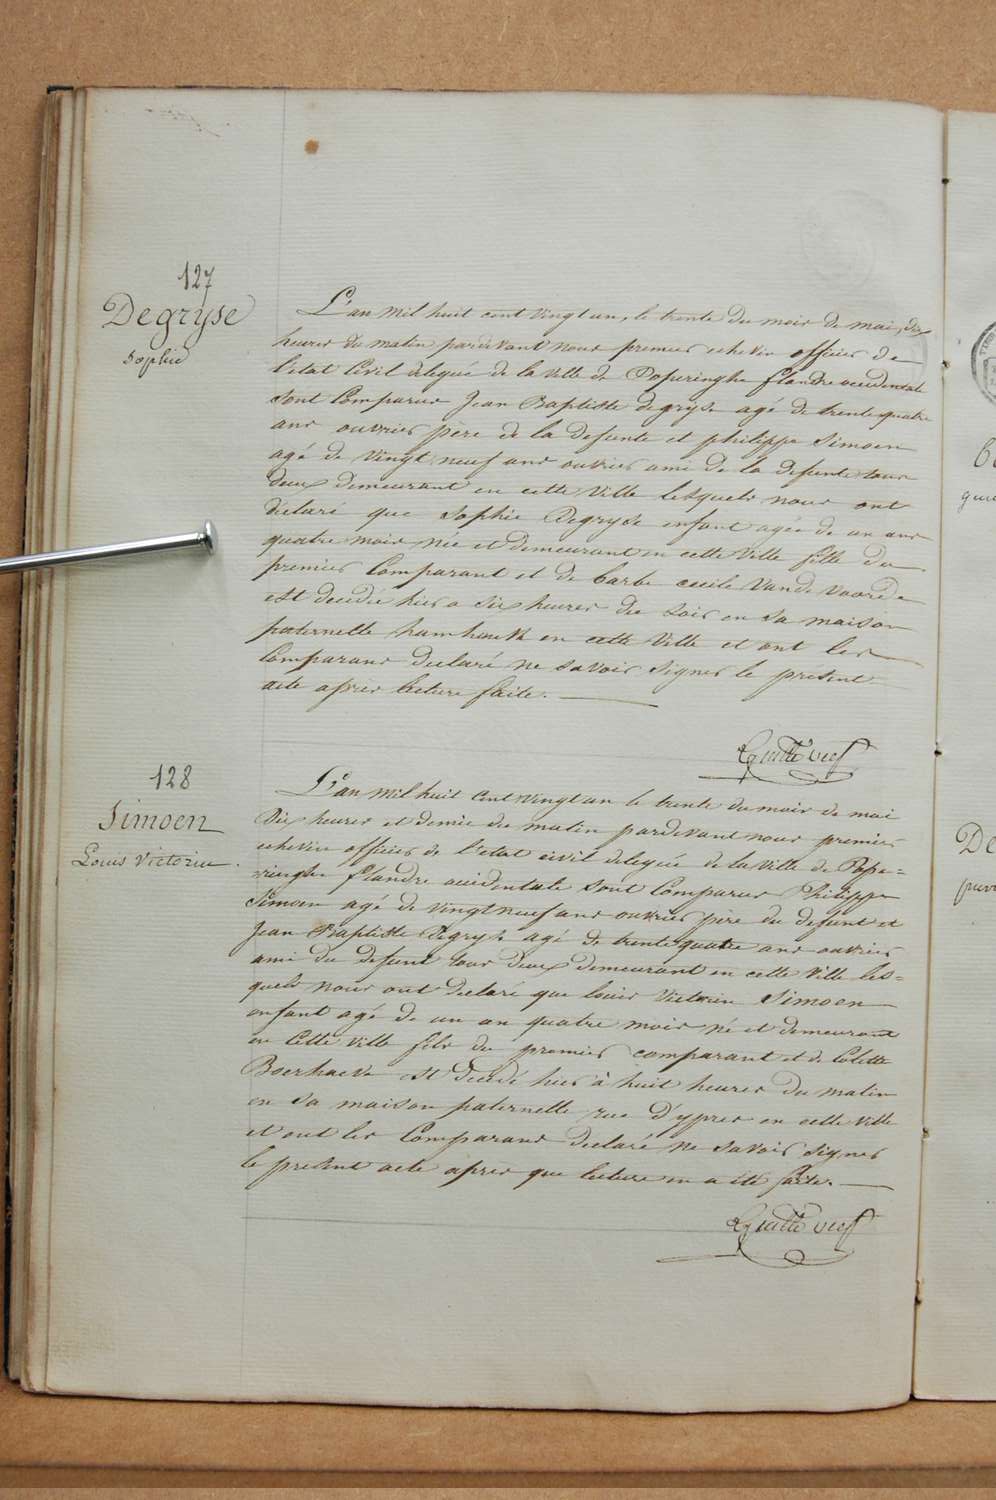 127
Degryse
Sophie
L'an mil huit cent vingt un, le trente du mois de mai, dix
heures du matin pardevant nous premier echevin officier de
l'etat Civil delegué de la ville de Poperinghe flandre occidentale
sont Comparus Jean Baptiste degryse agé de trente quatre
ans ouvrier père de la defunte et philippe Simoen
agé de vingt neuf ans ouvrier ami de la defunte tous
deux demeurant en cette Ville lesquels nous ont
déclaré que Sophie Degryse enfant agée de un ans
quatre mois née et demeurant en cette Ville fille du
premier Comparant et de barbe cecile Vande Voorde
est decedée hier a six heures du soir en sa maison
paternelle hamhouk en cette Ville et ont les
Comparans declaré ne savoir signer le présent
acte après lecture faite.
128
Simoen
Louis Victorin
L'an mil huit cent vingt un le trente du mois de mai
dix heures et demie du matin pardevant nous premier
echevin officier de l'etat civil delegué de la ville de Pope=
ringhe flandre occidentale sont Comparus Philippe
Simoen agé de vingt neuf ans ouvrier père du defunt et
Jean Baptiste Degryse agé de trente quatre ans ouvrier
ami du defunt tous deux demeurant en cette Ville les=
quels nous ont declaré que louis Victorin Simoen
enfant agé de un an quatre mois né et demeurant
en cette ville fils du premier comparant et de Colette
Boerhaeve est decedé hier à huit heures du matin
en sa maison paternelle rue d'ypres en cette ville
et ont les Comparans declaré ne savoir signer
le présent acte après que lecture en a été faite.
De